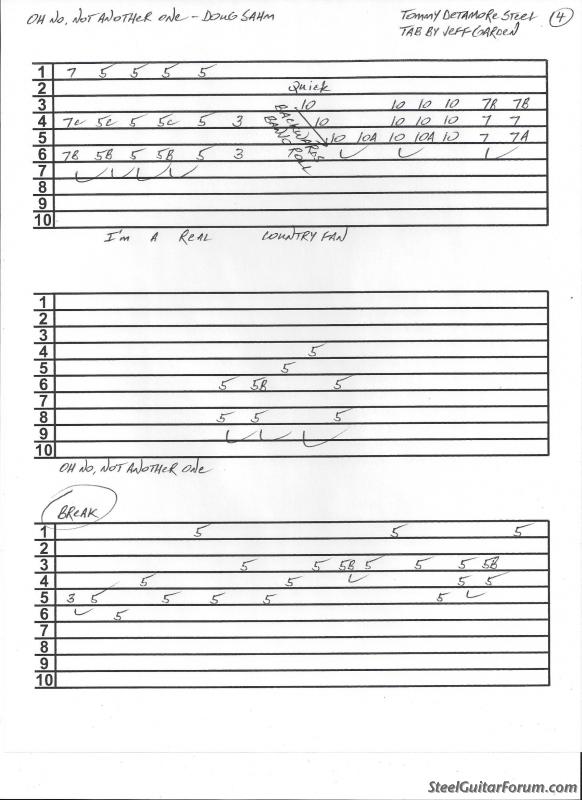 OH NO, NOT ANOTHER ONE - DOUG SAHM
TOMMY DETAMORE STEEL 4
TAB BY JEFF GARDEN
1 7 5 5 5 5
2 Quick
3 10 10 10 10 7B 7B
4 7C 5C 5 5C 5 3 10 10 10 10 7 7
5 10 10A 10 10A 10 7 7A
6 7B 5B 5 5B 5 3
BACKWARDS
BANJO
ROLL
7
8
9
10
I'M A REAL COUNTRY FAN
1
2
3
4 5
5 5
6 5 5B 5
7
8 5 5 5
9
10
OH NO, NOT ANOTHER ONE
BREAK
1 5 5 5
2
3 5 5 5B 5 5 5 5B
4 5 5 5 5
5 3 5 5 5 5 5
6 5
7
8
9
10
SteelGuitarForum.com